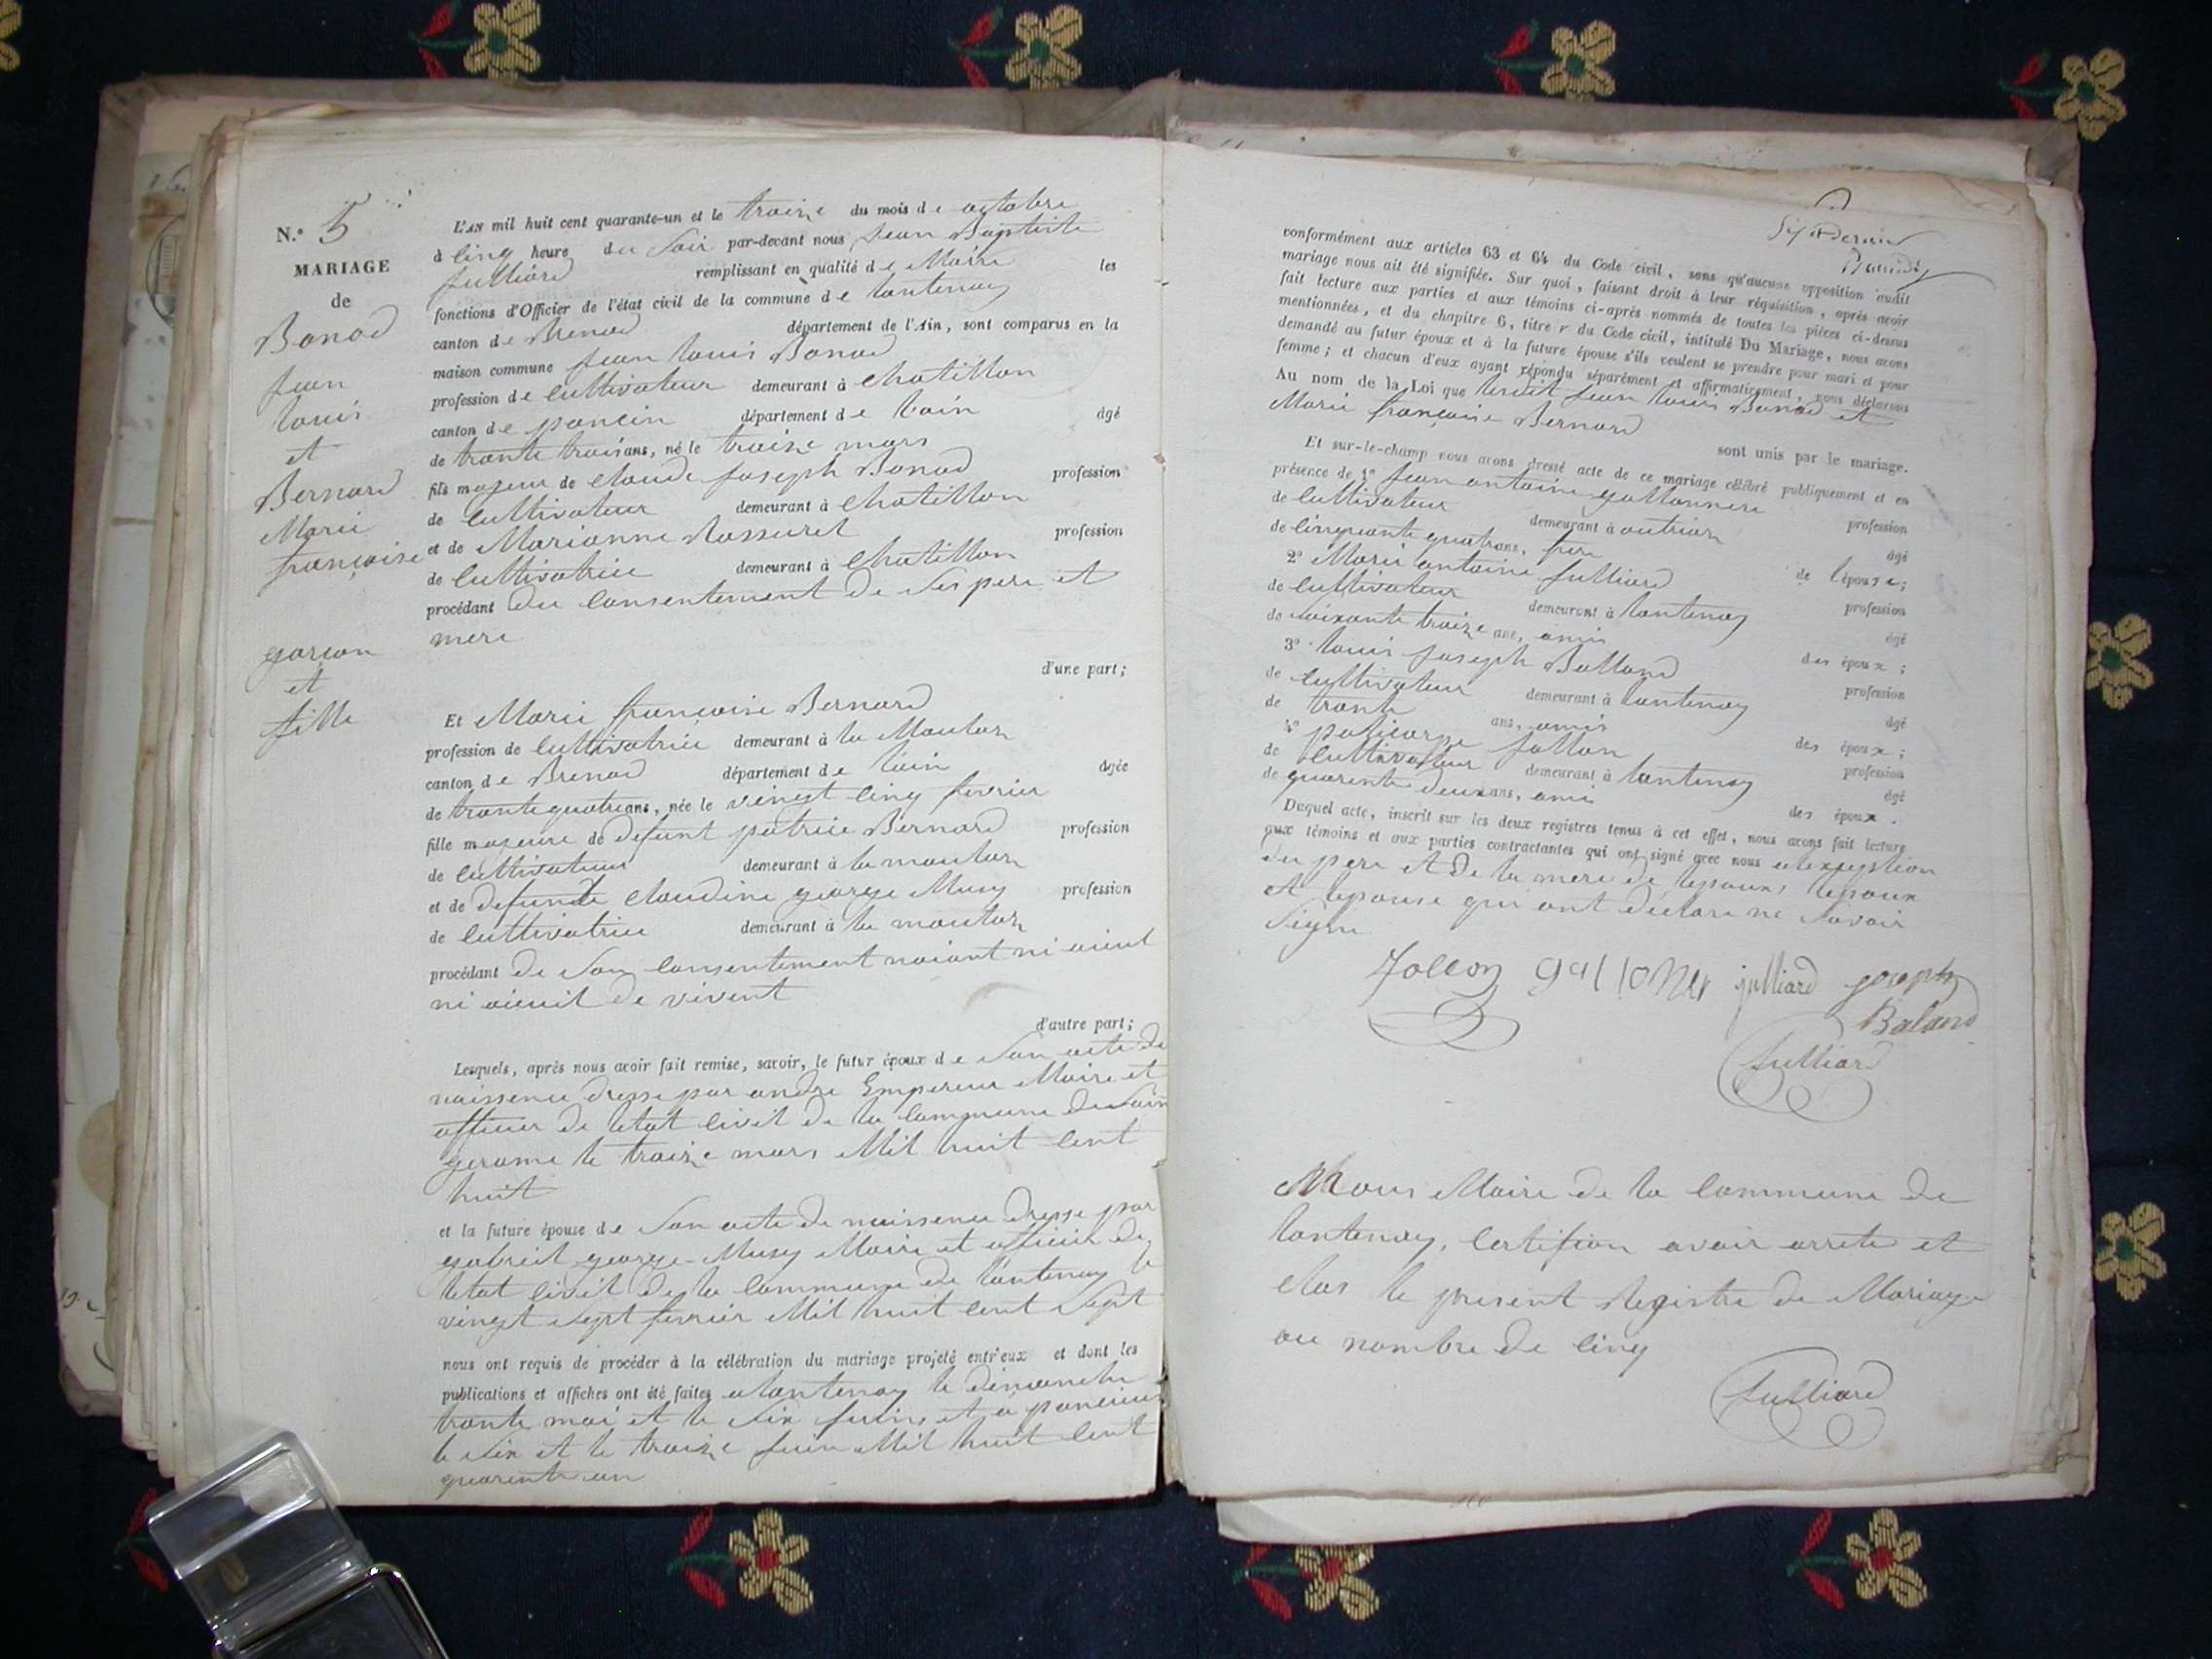 N.º 5
MARIAGE
de
Bonod
jean
louis
et
Bernard
Marie
françoise
garcon
et
fille
L'AN mil huit cent quarante-un et le traize du mois de octobre
à cinq heure du soir par-devant nous jean Baptiste
julliard remplissant en qualité de Maire les
fonctions d'Officier de l'état civil de la commune de lantenay
canton de Brenod département de l'Ain, sont comparus en la
maison commune jean louis Bonod
profession de cultivateur demeurant à chatillon
canton de poncin département de lain âgé
de trante trois ans, né le traize mars
fils majeur de claude joseph Bonod profession
de cultivateur demeurant à chatillon
et de Marianne Rasseuret profession
de cultivatrice demeurant à chatillon
procédant du consentement de ses pere et
mere
d'une part;
Et Marie françoise Bernard
profession de cultivatrice demeurant à la Moutoz
canton de Brenod département de lain âgée
de trante quatre ans, née le vingt cinq fevrier
fille majeure de defunt patrice Bernard profession
de cultivateur demeurant à la moutoz
et de defunte claudine george Musy profession
de cultivatrice demeurant à la moutoz
procédant de son consentement naiant ni aieul
ni aieuil de vivent
d'autre part;
Lesquels, après nous avoir fait remise, savoir, le futur époux de son acte de
naissence dresse par andre Empereur Maire et
officier de letat civil de la commune de sain
gerome le traize mars Mil huit cent
huit
et la future épouse de son acte de naissence dresse par
gabriel george-Musy Maire et officier de
letat civil de la commune de lantenay le
vingt sept fevrier Mil huit cent sept
nous ont requis de procéder à la célébration du mariage projeté entr'eux et dont les
publications et affiches ont été faites a lantenay le dimanche
trante mai et le six juin et a poncin
le six et le traize juin Mil huit cent
quarente un
conformément aux articles 63 et 64 du Code civil, sans qu'aucune opposition audit
mariage nous ait été signifiée. Sur quoi, faisant droit à leur réquisition, après avoir
fait lecture aux parties et aux témoins ci-après nommés de toutes les pièces ci-dessus
mentionnées, et du chapitre 6, titre V du Code civil, intitulé Du Mariage, nous avons
demandé au futur époux et à la future épouse s'ils veulent se prendre pour mari et pour
femme; et chacun d'eux ayant répondu séparément et affirmativement, nous déclarons
Au nom de la Loi que jean louis Bonod et
Marie françoise Bernard
sont unis par le mariage.
Et sur-le-champ nous avons dressé acte de ce mariage célébré publiquement et en
présence de 1º jean antoine gallonnere profession
de cultivateur demeurant à outriaz âgé
de cinquante quatr ans, frere de lépouse;
2º Marie antoine julliard profession
de cultivateur demeurant à lantenay âgé
de soixante traize ans, amis des époux;
3º louis joseph Balland profession
de cultivateur demeurant à lantenay âgé
de trante ans, amis des époux;
4º policarpe jollon profession
de cultivateur demeurant à lantenay âgé
de quarente deux ans, ami des époux.
Duquel acte, inscrit sur les deux registres tenus à cet effet, nous avons fait lecture
aux témoins et aux parties contractantes qui ont signé avec nous alexeption
du pere et de la mere de lepoux, lepoux
et lepouse qui ont declare ne savoir
signe
Jollon gallonner julliard joseph
Baland
Julliard
Nous Maire de la commune de
lantenay, certifion avoir arrete et
clos le present Registre de Mariage
au nombre de cinq
Julliard